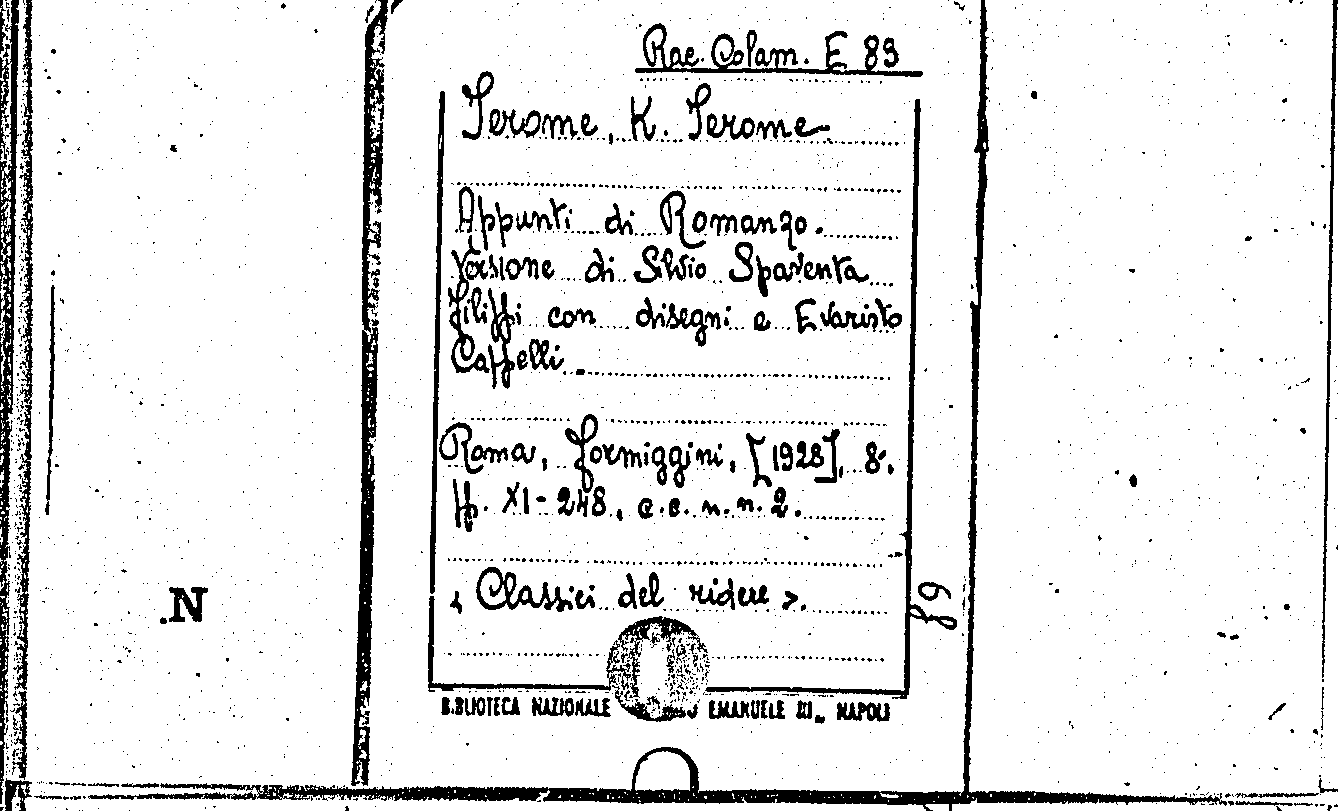 Rac. Colam. E 89
Jerome, K. Jerome
Appunti di Romanzo.
Versione di Silvio Spaventa
Filippi con disegni e Evaristo
Cappelli.
Roma, Formiggini, [1928], 8°.
pp. XI-248, c.c. n.n. 2.
« Classici del ridere ».
89
.N
BIBLIOTECA NAZIONALE EMANUELE III„ NAPOLI